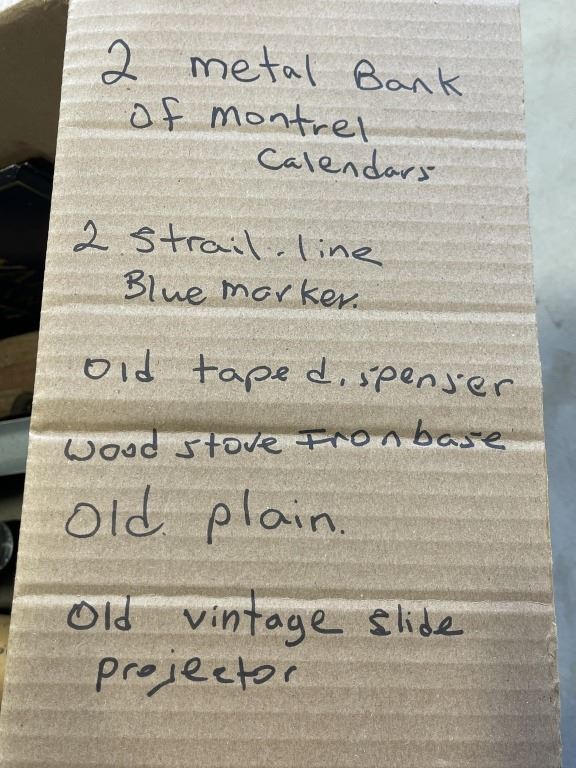 2 metal Bank
of montrel
Calendars
2 Strail.line
Blue marker.
Old tape dispenser
Wood stove Iron base
Old. plain.
Old vintage slide
projector